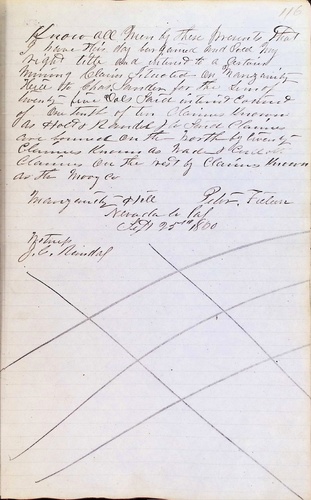 116
Know all Men by these presents that
I have this day bargained and sold my
right title and interest to a certain
mining Claim situated on Manzanita
Hill to Chas. for the Sum of
twenty five Dols Said interest consist
of One tenth of ten Claims Known
as Holt & Co Said Claims
are bounded on the North by twenty
Claims Known as
Claims On the west by Claims Known
as the Mooy Co
Manzanita Hill Peter
Nevada Co Cal
Sept 25th 1860
Witness
J. C.